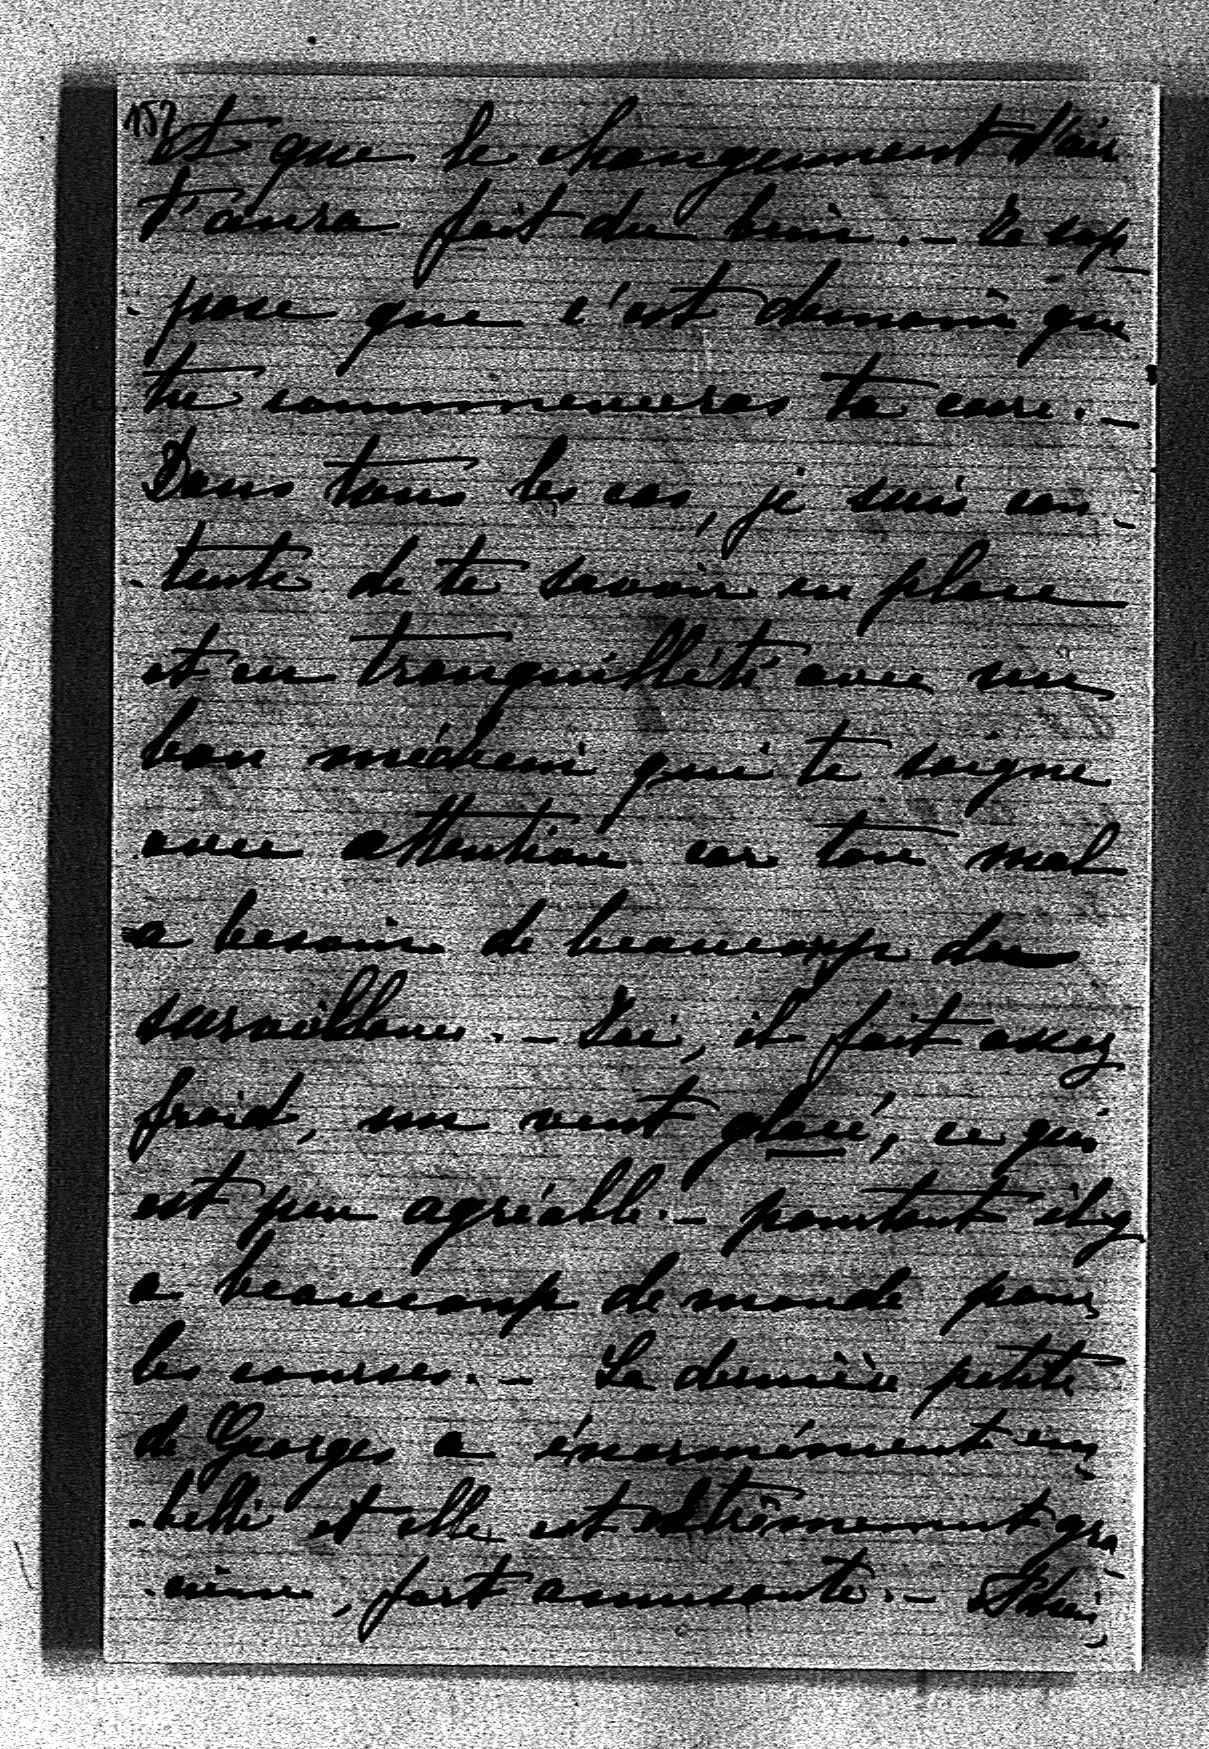 152
Et que le changement d'air
t'aura fait du bien. - Je sup-
-pose que c'est demain que
tu commenceras ta cure. -
Dans tous les cas, je suis con-
-tente de te savoir en place
et en tranquillité avec un
bon médecin qui te soigne
avec attention car ton mal
a besoin de beaucoup de
surveillance. - Ici, il fait assez
froid, un vent glacé, ce qui
est peu agréable. - pourtant il y
a beaucoup de monde pour
les courses. - La dernière petite
de Georges a énormément em-
-belli et elle est extrêmement gra-
-cieuse, fort amusante. -